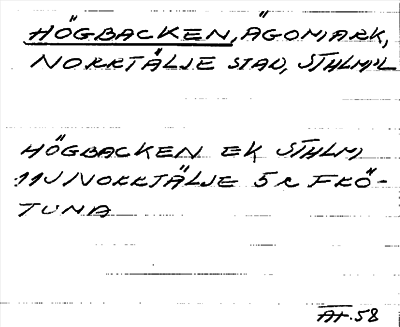 HÖGBACKEN, ÄGOMARK,
NORRTÄLJE STAD, STHLM:L
HÖGBACKEN EK STHLM
11J NORRTÄLJE 5 c FRÖ-
TUNA
ÄH. 58